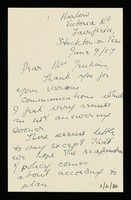 Harlow
Victoria Rd
Fairfield,
Stockton-on-Tees
June 9/87
Dear Mr Jenkins,
Thank you for
your various
communications which
I just very
in not answering
sooner.
There seems little
to say except that
we hope the
of policy comes
about according to
plan